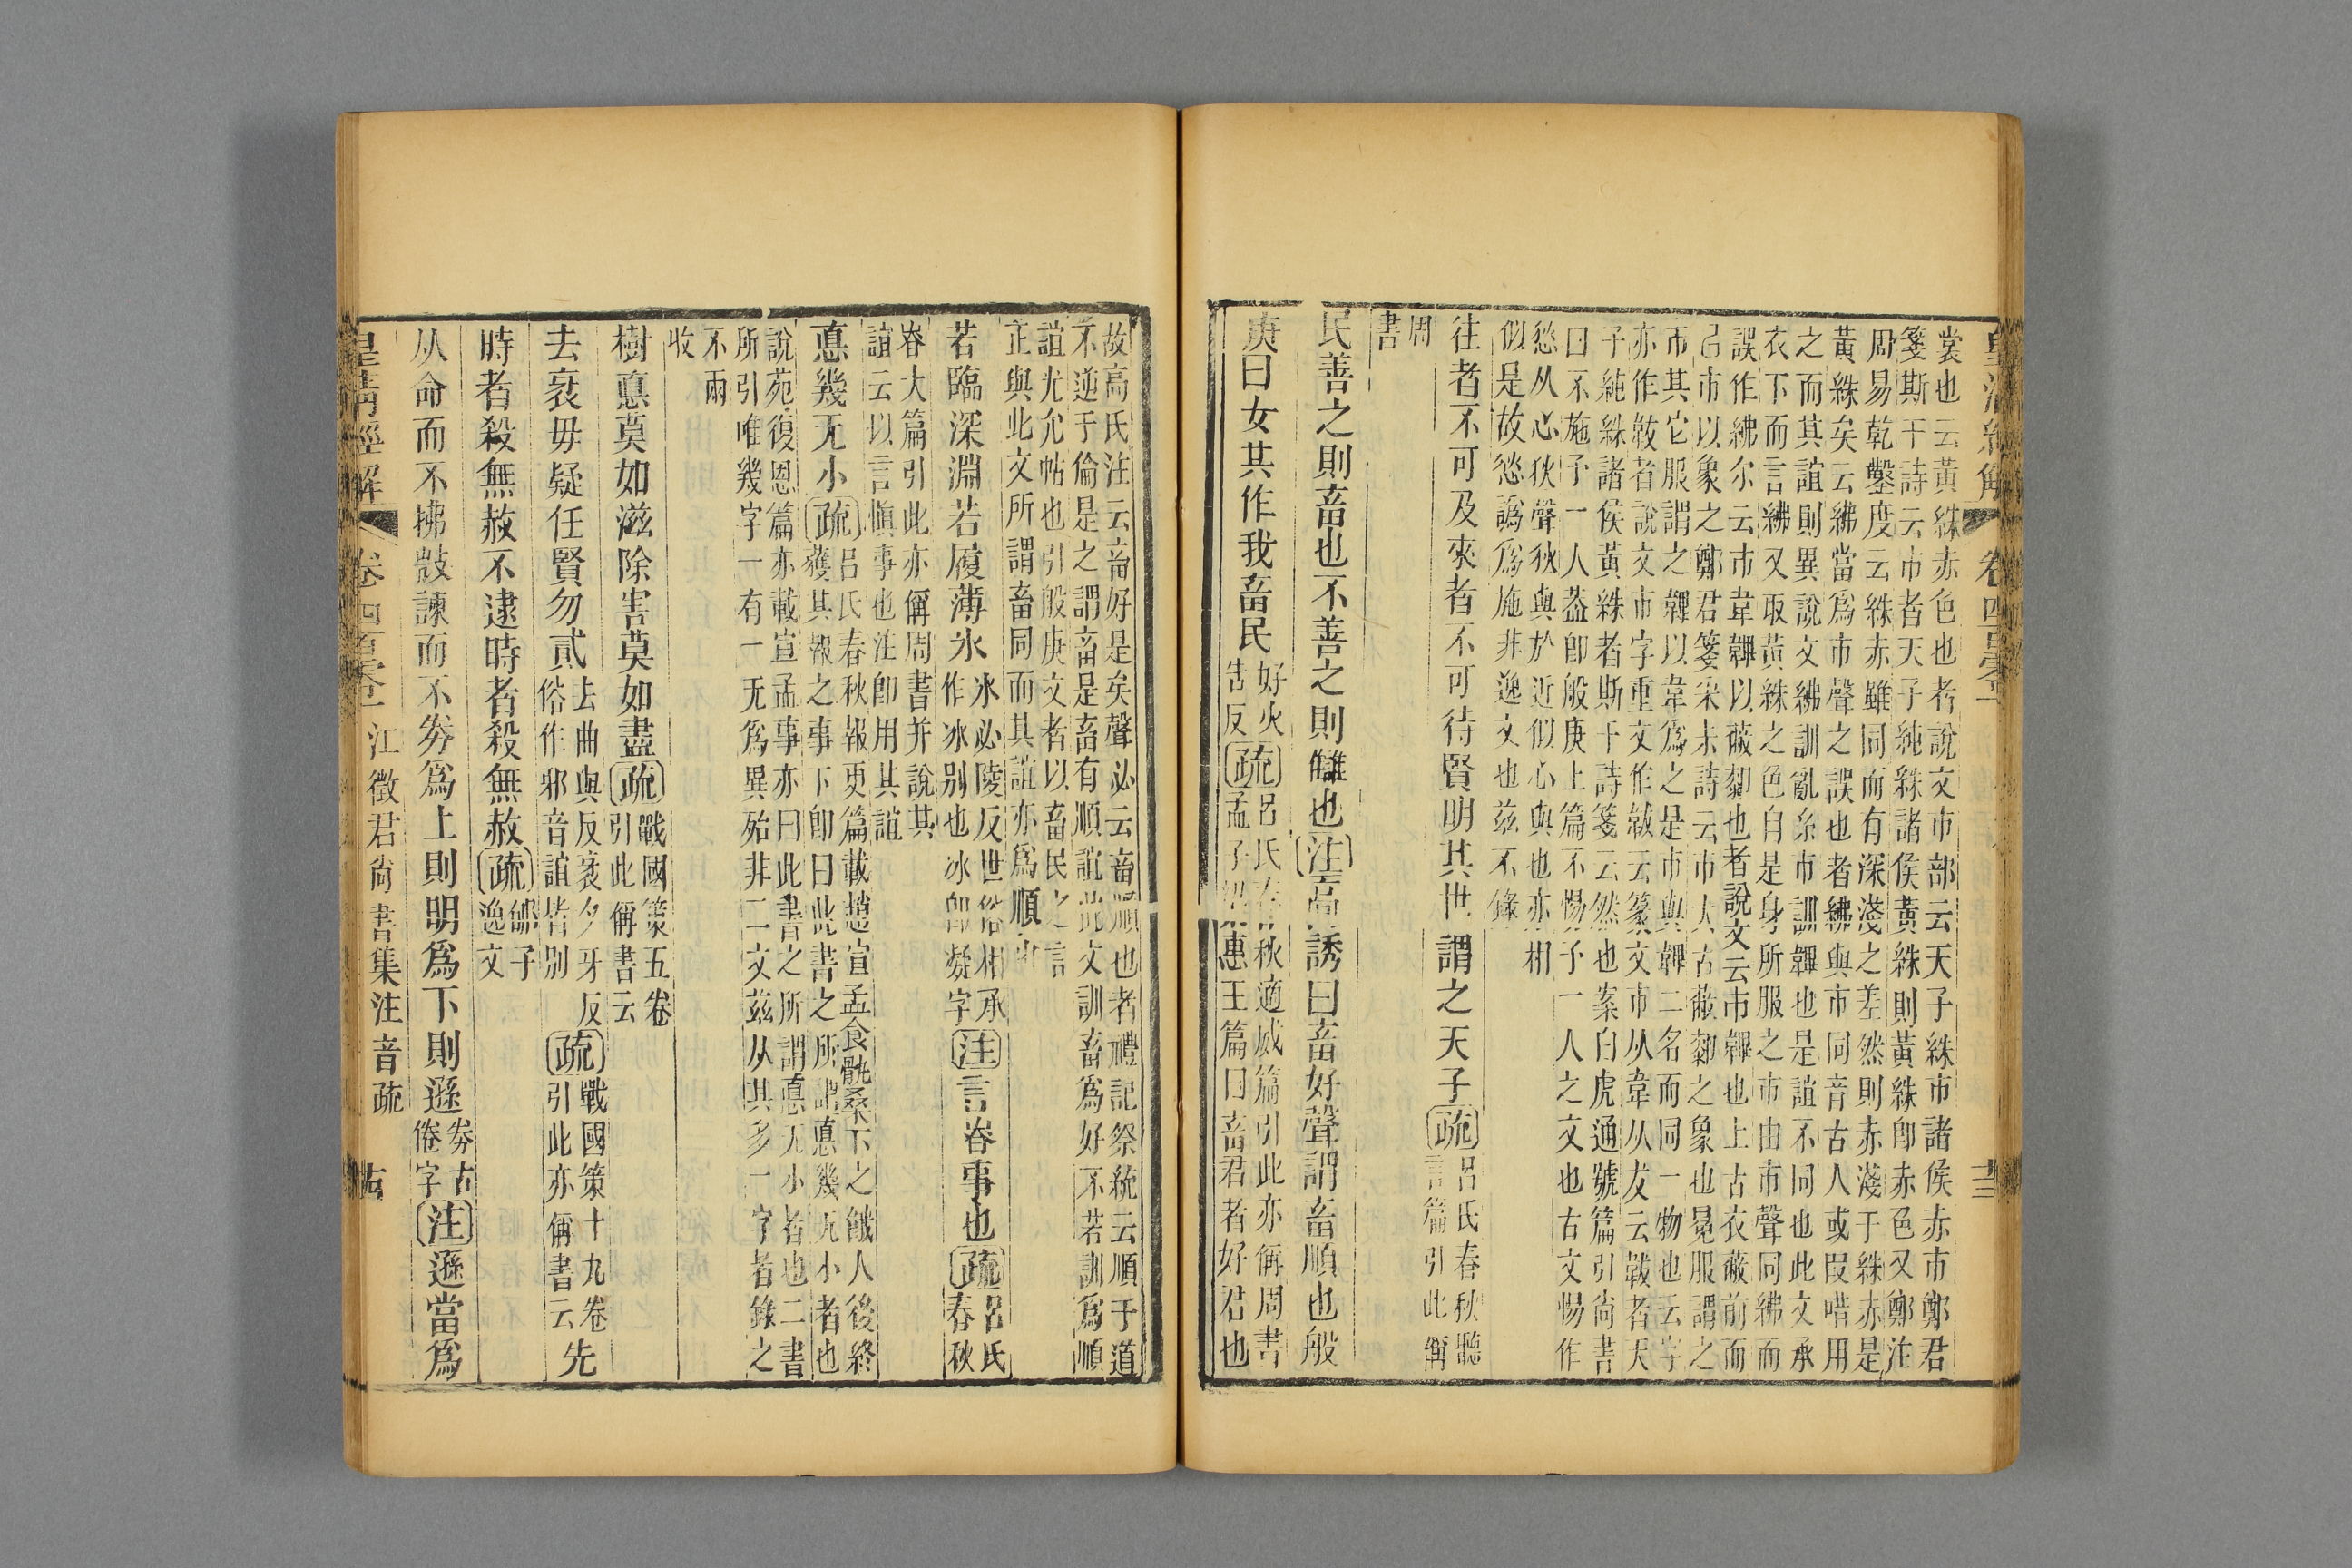 皇清經解 卷四百 十三
裳也云黃絑赤色也者說文巿部云天子絑巿諸侯赤巿鄭君
箋斯干詩云巿者天子純絑諸侯黃絑則黃絑卽赤色又鄭注
周易乾鑿度云絑赤雖同而有深淺之差然則赤淺于絑赤是
黃絑矣云紼當爲巿聲之誤也者紼與巿同音古人或叚唶用
之而其誼則異說文紼訓亂糸巿訓韠也是誼不同也此文承
衣下而言紼又取黃絑之色自是身所服之巿由巿聲同紼而
誤作紼尔云巿韋韠以蔽䣛也者說文云巿韠也上古衣蔽前而
已巿以象之鄭君箋采未詩云巿大古蔽䣛之象也冕服謂之
巿其它服謂之韠以韋爲之是巿與韠二名而同一物也云字
亦作韍者說文巿字重文作韍云篆文巿从韋从犮云韍者天
子純絑諸侯黃絑者斯干詩箋云然也案白虎通號篇引尙書
曰不施予一人葢卽般庚上篇不惕予一人之文也古文惕作
悐从心狄聲狄與於近佀心與也亦相
佀是故悐譌爲施非逸文也兹不錄
往者不可及來者不可待賢明其世謂之天子疏呂氏春秋聽
言篇引此偁
周
書
民善之則畜也不善之則讎也注高誘曰畜好聲謂畜順也般
庚曰女其作我畜民好火
吿反疏呂氏春秋適威篇引此亦偁周書
孟子梁惠王篇曰畜君者好君也
故高氏注云畜好是矣聲必云畜順也者禮記祭統云順于道
不逆于倫是之謂畜是畜有順誼此文訓畜爲好不若訓爲順
誼尤允帖也引般庚文者以畜民之言
正與此文所謂畜同而其誼亦爲順也
若臨深淵若履薄冰冰必陵反世俗相承
作冰別也冰卽凝字注言昚事也疏呂氏
春秋
昚大篇引此亦偁周書幷說其
誼云以言愼事也注卽用其誼
悳幾无小疏呂氏春秋報更篇載趙宣孟食骩桑下之餓人後終
獲其報之事下卽曰此書之所謂悳幾无小者也
說苑復恩篇亦載宣孟事亦曰此書之所謂悳无小者也二書
所引唯幾字一有一无爲異殆非二文兹从其多一字者錄之
不兩
收
樹悳莫如滋除害莫如盡疏戰國策五卷
引此偁書云
去衺毋疑任賢勿貳去曲與反衺夕牙反
俗作邪音誼皆別疏戰國策十九卷
引此亦偁書云先
時者殺無赦不逮時者殺無赦疏郇子
逸文
从命而不拂㪣諫而不㢧爲上則明爲下則遜㢧古
倦字注遜當爲
皇清經解 卷四百 江徵君尙書集注音疏 十四